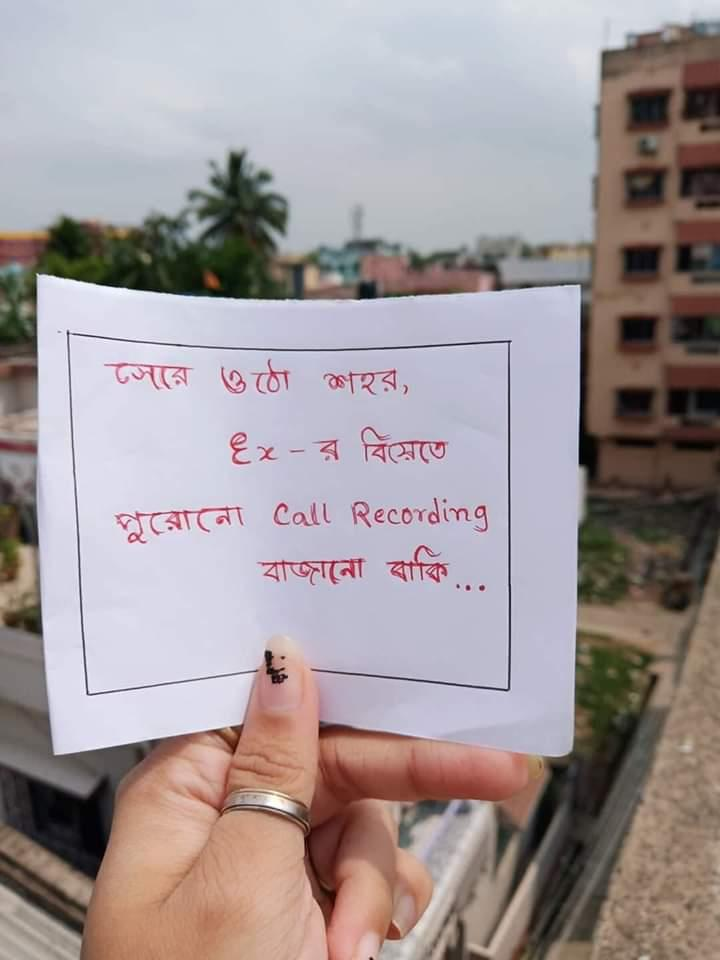 সেরে ওঠো শহর,
Ex-র বিয়েতে
পুরোনো Call Recording
বাজানো বাকি...